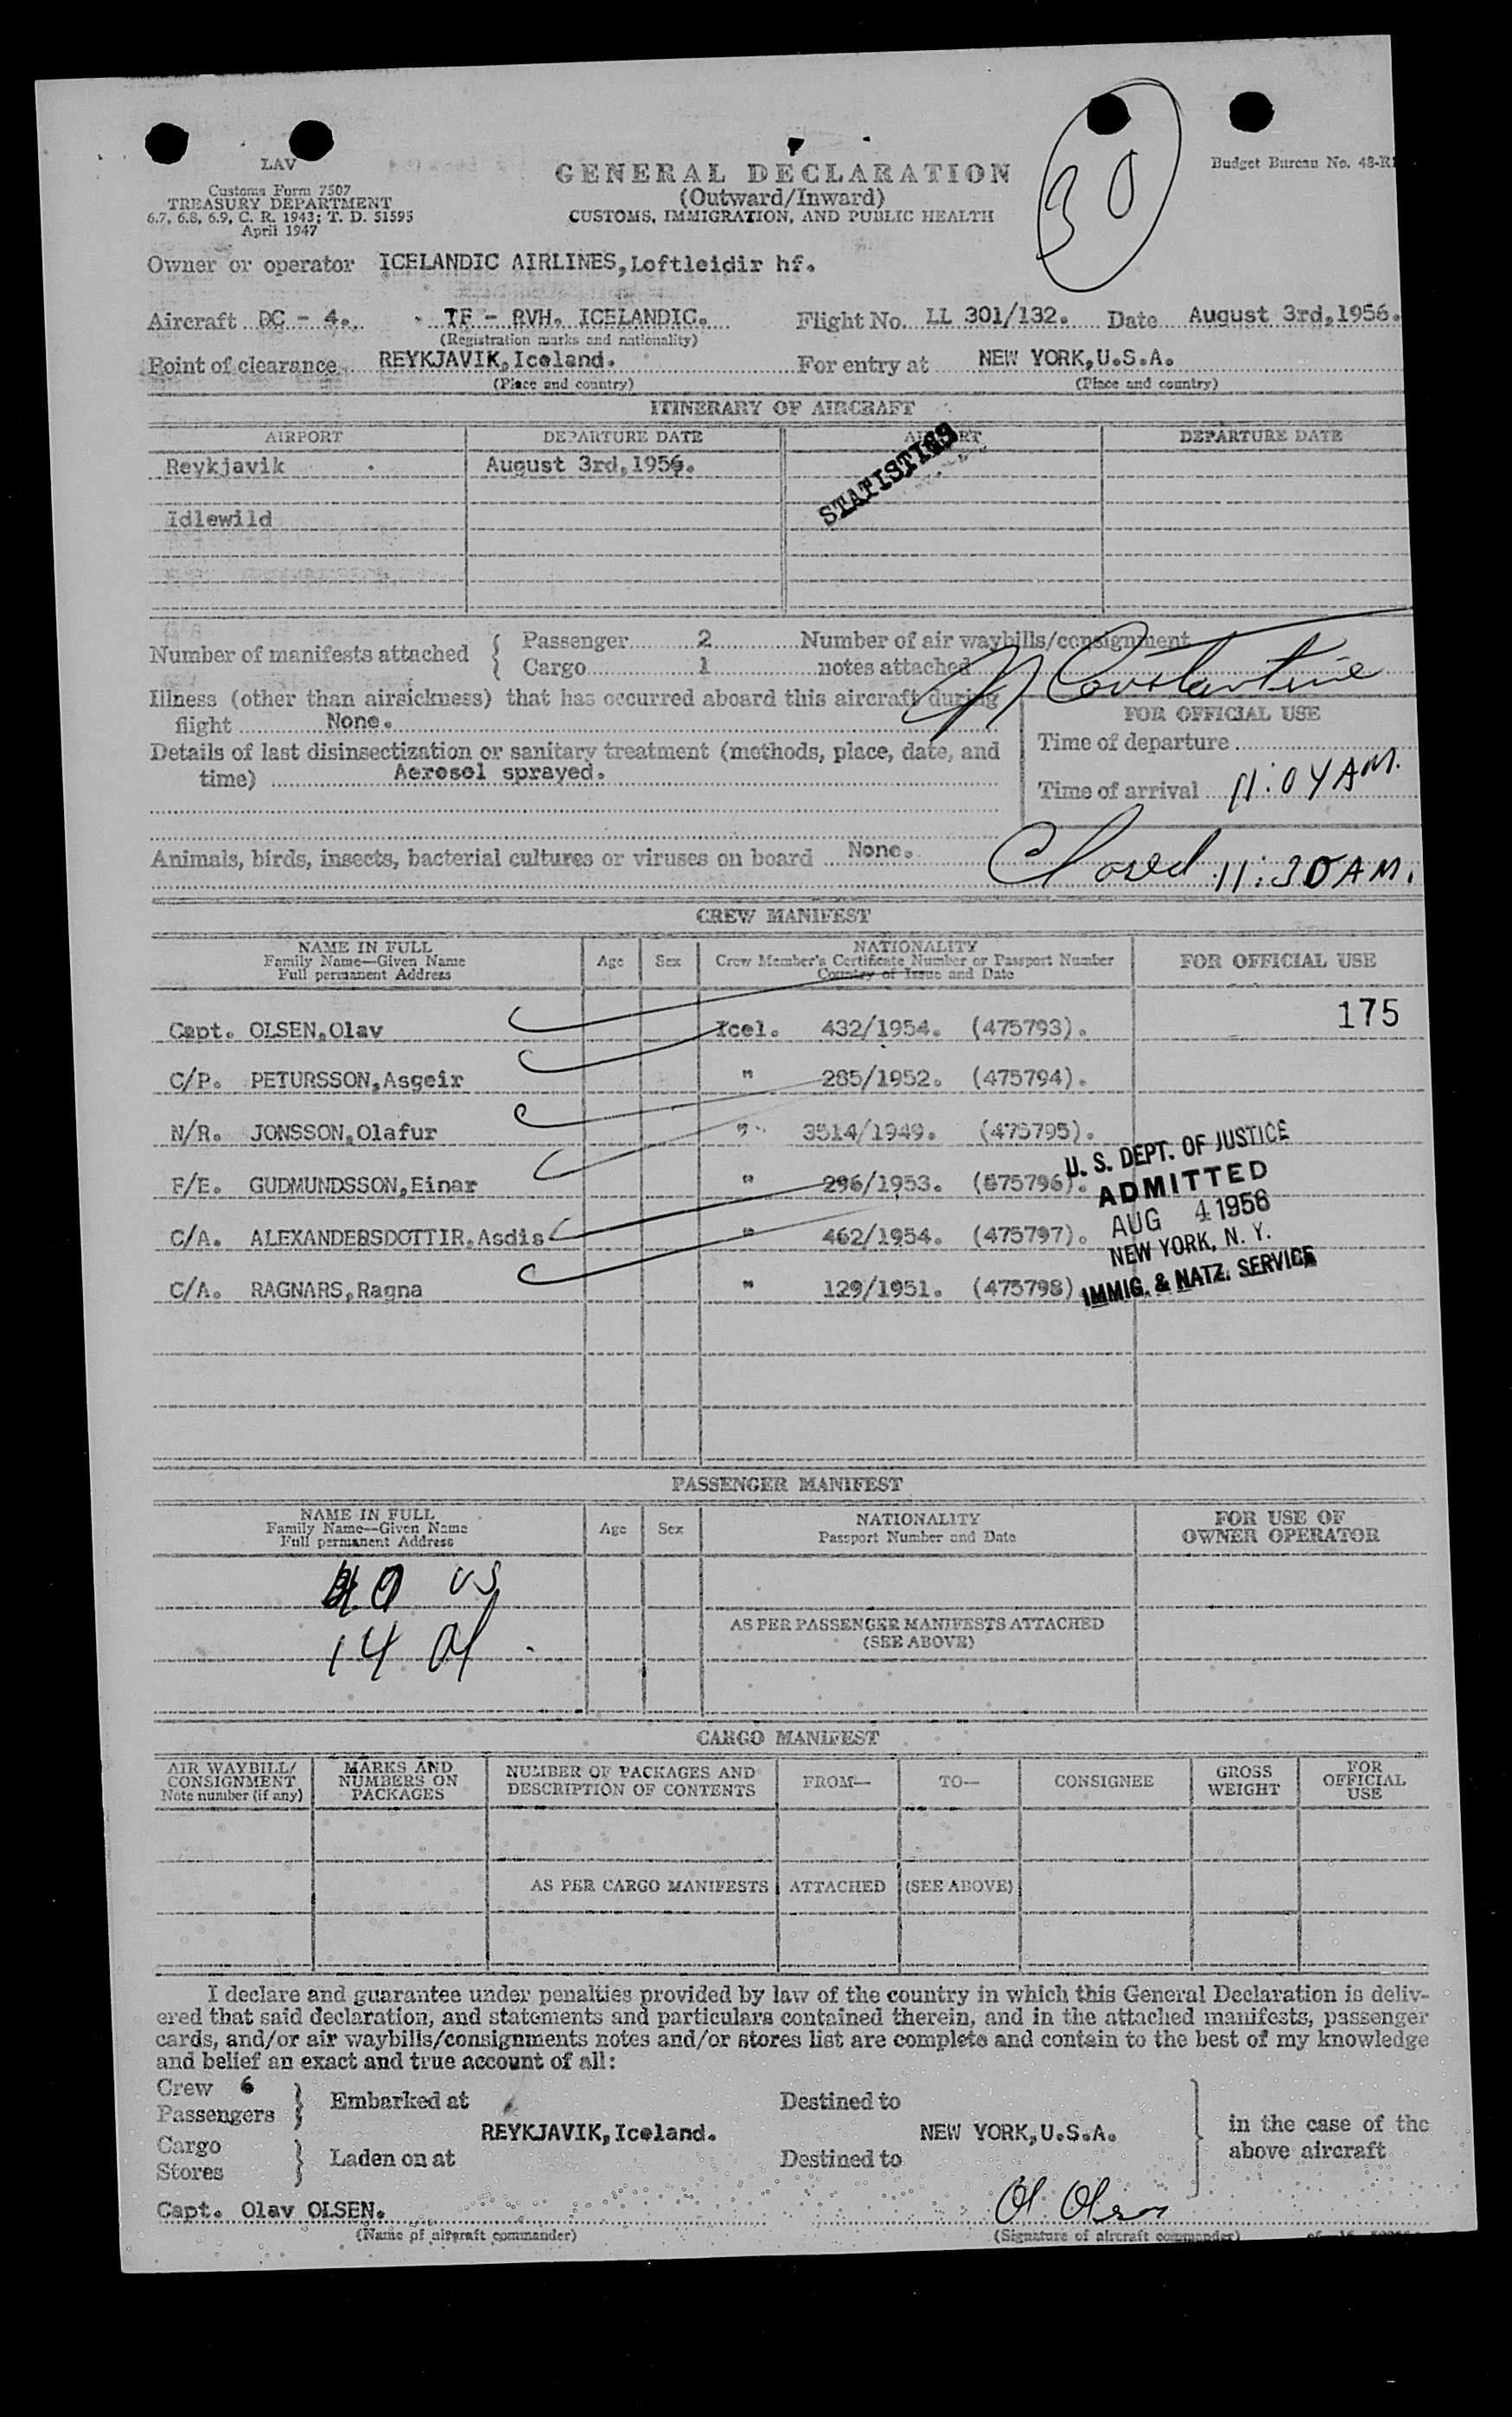 LAV
Customs Form 7507
TREASURY DEPARTMENT
6.7, 6.8, 6.9, C. R. 1943; T. D. 51595
April 1947
GENERAL DECLARATION
(Outward/Inward)
CUSTOMS, IMMIGRATION, AND PUBLIC HEALTH
30
Budget Bureau No. 48-R
Owner or operator ICELANDIC AIRLINES, Loftleidir hf.
Aircraft DC - 4. TF - RVH. ICELANDIC. Flight No. LL 301/132. Date August 3rd, 1956.
(Registration marks and nationality)
Point of clearance REYKJAVIK, Iceland. For entry at NEW YORK, U.S.A.
(Place and country) (Place and country)
ITINERARY OF AIRCRAFT
AIRPORT DEPARTURE DATE AIRPORT DEPARTURE DATE
STATISTICS
Reykjavik August 3rd, 1956.
Idlewild
Number of manifests attached { Passenger 2 Number of air waybills/consignment
Cargo 1 notes attached
Constantine
Illness (other than airsickness) that has occurred aboard this aircraft during
flight None.
FOR OFFICIAL USE
Time of departure
Details of last disinsectization or sanitary treatment (methods, place, date, and
time) Aerosol sprayed.
Time of arrival 11:04 AM.
Animals, birds, insects, bacterial cultures or viruses on board None.
Closed 11:30 AM.
CREW MANIFEST
NAME IN FULL
Family Name—Given Name
Full permanent Address
Age Sex
NATIONALITY
Crew Member's Certificate Number or Passport Number
Country of Issue and Date
FOR OFFICIAL USE
175
Capt. OLSEN, Olav Icel. 432/1954. (475793).
C/P. PETURSSON, Asgeir " 285/1952. (475794).
N/R. JONSSON, Olafur " 3514/1949. (475795).
F/E. GUDMUNDSSON, Einar " 296/1953. (875796).
C/A. ALEXANDERSDOTTIR, Asdis " 462/1954. (475797).
C/A. RAGNARS, Ragna " 129/1951. (475798)
U. S. DEPT. OF JUSTICE
ADMITTED
AUG 4 1956
NEW YORK, N. Y.
IMMIG. & NATZ. SERVICE
PASSENGER MANIFEST
NAME IN FULL
Family Name—Given Name
Full permanent Address
Age Sex
NATIONALITY
Passport Number and Date
FOR USE OF
OWNER OPERATOR
US
14
AS PER PASSENGER MANIFESTS ATTACHED
(SEE ABOVE)
CARGO MANIFEST
AIR WAYBILL/
CONSIGNMENT
Note number (if any)
MARKS AND
NUMBERS ON
PACKAGES
NUMBER OF PACKAGES AND
DESCRIPTION OF CONTENTS
FROM— TO— CONSIGNEE
GROSS
WEIGHT
FOR
OFFICIAL
USE
AS PER CARGO MANIFESTS ATTACHED (SEE ABOVE)
I declare and guarantee under penalties provided by law of the country in which this General Declaration is deliv-
ered that said declaration, and statements and particulars contained therein, and in the attached manifests, passenger
cards, and/or air waybills/consignments notes and/or stores list are complete and contain to the best of my knowledge
and belief an exact and true account of all:
Crew 6
Passengers } Embarked at Destined to
REYKJAVIK, Iceland. NEW YORK, U.S.A.
in the case of the
above aircraft
Cargo
Stores } Laden on at Destined to
Capt. Olav OLSEN. Ol Olsen
(Name of aircraft commander) (Signature of aircraft commander)